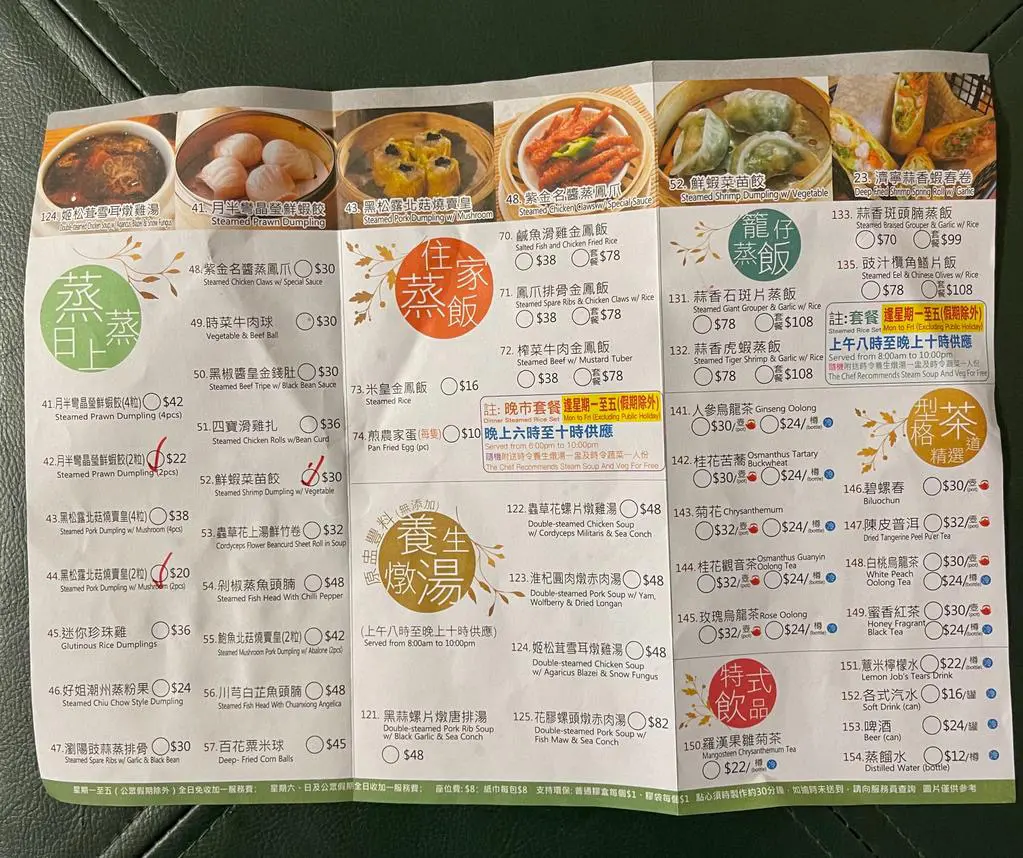 124.姬松茸雪耳燉雞湯
Double-steamed Chicken Soup w/ Agaricus Blazei & Snow Fungus
41. 月半彎晶瑩鮮蝦餃
Steamed Prawn Dumpling
43. 黑松露北菇燒賣皇
Steamed Pork Dumpling w/ Mushroom
48. 紫金名醬蒸鳳爪
Steamed Chicken Clawsw/ Special Sauce
52. 鮮蝦菜苗餃
Steamed Shrimp Dumpling w/ Vegetable
23. 濟寧蒜香蝦春卷
Deep Fried Shrimp Spring Roll w/ Garlic
蒸蒸日上
41.月半彎晶瑩鮮蝦餃(4粒) $42
Steamed Prawn Dumpling (4pcs)
42.月半彎晶瑩鮮蝦餃(2粒) $22
Steamed Prawn Dumpling (2pcs)
43.黑松露北菇燒賣皇(4粒) $38
Steamed Pork Dumpling w/ Mushroom (4pcs)
44.黑松露北菇燒賣皇(2粒) $20
Steamed Pork Dumpling w/ Mushroom (2pcs)
45.迷你珍珠雞 $36
Glutinous Rice Dumplings
46.好姐潮州蒸粉果 $24
Steamed Chiu Chow Style Dumpling
47.瀏陽豉蒜蒸排骨 $30
Steamed Spare Ribs w/ Garlic & Black Bean
48.紫金名醬蒸鳳爪 $30
Steamed Chicken Claws w/ Special Sauce
49.時菜牛肉球 $30
Vegetable & Beef Ball
50.黑椒醬皇金錢肚 $30
Steamed Beef Tripe w/ Black Bean Sauce
51.四寶滑雞扎 $36
Steamed Chicken Rolls w/Bean Curd
52.鮮蝦菜苗餃 $30
Steamed Shrimp Dumpling w/ Vegetable
53.蟲草花上湯鮮竹卷 $32
Cordyceps Flower Beancurd Sheet Roll in Soup
54.剁椒蒸魚頭腩 $48
Steamed Fish Head With Chilli Pepper
55.鮑魚北菇燒賣皇(2粒) $42
Steamed Mushroom Pork Dumpling w/ Abalone (2pcs)
56.川芎白芷魚頭腩 $48
Steamed Fish Head With Chuanxiong Angelica
57.百花粟米球 $45
Deep- Fried Corn Balls
住家蒸飯
70. 鹹魚滑雞金鳳飯
Salted Fish and Chicken Fried Rice
$38 套餐 $78
71. 鳳爪排骨金鳳飯
Steamed Spare Ribs & Chicken Claws w/ Rice
$38 套餐 $78
72. 榨菜牛肉金鳳飯
Steamed Beef w/ Mustard Tuber
$38 套餐 $78
73.米皇金鳳飯 $16
Steamed Rice
74. 煎農家蛋(每隻) $10
Pan Fried Egg (pc)
註: 晚市套餐 逢星期一至五(假期除外)
Dinner Steamed Rice Set Mon to Fri (Excluding Public Holiday)
晚上六時至十時供應
Served from 6:00pm to 10:00pm
隨機附送時令養生燉湯一盅及時令蔬菜一人份
The Chef Recommends Steam Soup And Veg For Free
原盅豐料(無添加)
養生燉湯
(上午八時至晚上十時供應)
Served from 8:00am to 10:00pm
121. 黑蒜螺片燉唐排湯
Double-steamed Pork Rib Soup
w/ Black Garlic & Sea Conch
$48
122. 蟲草花螺片燉雞湯 $48
Double-steamed Chicken Soup
w/ Cordyceps Militaris & Sea Conch
123. 淮杞圓肉燉赤肉湯 $48
Double-steamed Pork Soup w/ Yam,
Wolfberry & Dried Longan
124. 姬松茸雪耳燉雞湯 $48
Double-steamed Chicken Soup
w/ Agaricus Blazei & Snow Fungus
125. 花膠螺頭燉赤肉湯 $82
Double-steamed Pork Soup w/
Fish Maw & Sea Conch
籠仔蒸飯
131. 蒜香石斑片蒸飯
Steamed Giant Grouper & Garlic w/ Rice
$78 套餐 $108
132. 蒜香虎蝦蒸飯
Steamed Tiger Shrimp & Garlic w/ Rice
$78 套餐 $108
133. 蒜香斑頭腩蒸飯
Steamed Braised Grouper & Garlic w/ Rice
$70 套餐 $99
135. 豉汁欖角鱔片飯
Steamed Eel & Chinese Olives w/ Rice
$78 套餐 $108
註:套餐 逢星期一至五(假期除外)
Steamed Rice Set Mon to Fri (Excluding Public Holiday)
上午八時至晚上十時供應
Served from 8:00am to 10:00pm
隨機附送時令養生燉湯一盅及時令蔬菜一人份
The Chef Recommends Steam Soup And Veg For Free
型格茶道精選
141. 人參烏龍茶 Ginseng Oolong
$30/壺(pot) $24/樽(bottle) 冷
142. 桂花苦蕎 Osmanthus Tartary Buckwheat
$30/壺(pot) $24/樽(bottle) 冷
143. 菊花 Chrysanthemum
$32/壺(pot) $24/樽(bottle) 冷
144. 桂花觀音茶 Osmanthus Guanyin Oolong Tea
$32/壺(pot) $24/樽(bottle) 冷
145. 玫瑰烏龍茶 Rose Oolong
$32/壺(pot) $24/樽(bottle) 冷
146. 碧螺春 $30/壺(pot)
Biluochun
147. 陳皮普洱 $32/壺(pot)
Dried Tangerine Peel Pu'er Tea
148. 白桃烏龍茶 $30/壺(pot)
White Peach Oolong Tea $24/樽(bottle) 冷
149. 蜜香紅茶 $30/壺(pot)
Honey Fragrant Black Tea $24/樽(bottle) 冷
特式飲品
150. 羅漢果雛菊茶
Mangosteen Chrysanthemum Tea
$22/樽(bottle) 冷
151. 薏米檸檬水 $22/樽(bottle) 冷
Lemon Job's Tears Drink
152. 各式汽水 $16/罐 冷
Soft Drink (can)
153. 啤酒 $24/罐 冷
Beer (can)
154. 蒸餾水 $12/樽 冷
Distilled Water (bottle)
星期一至五(公眾假期除外)全日免收加一服務費; 星期六、日及公眾假期全日加一服務費; 座位費: $8; 紙巾每包$8 支持環保: 普通膠盒每個$1、膠袋每個$1 點心須時製作約30分鐘, 如逾時未送到, 請向服務員查詢 圖片僅供參考